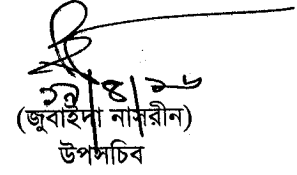 ১৯/৪/১৬
(জুবাইদা নাসরীন)
উপসচিব